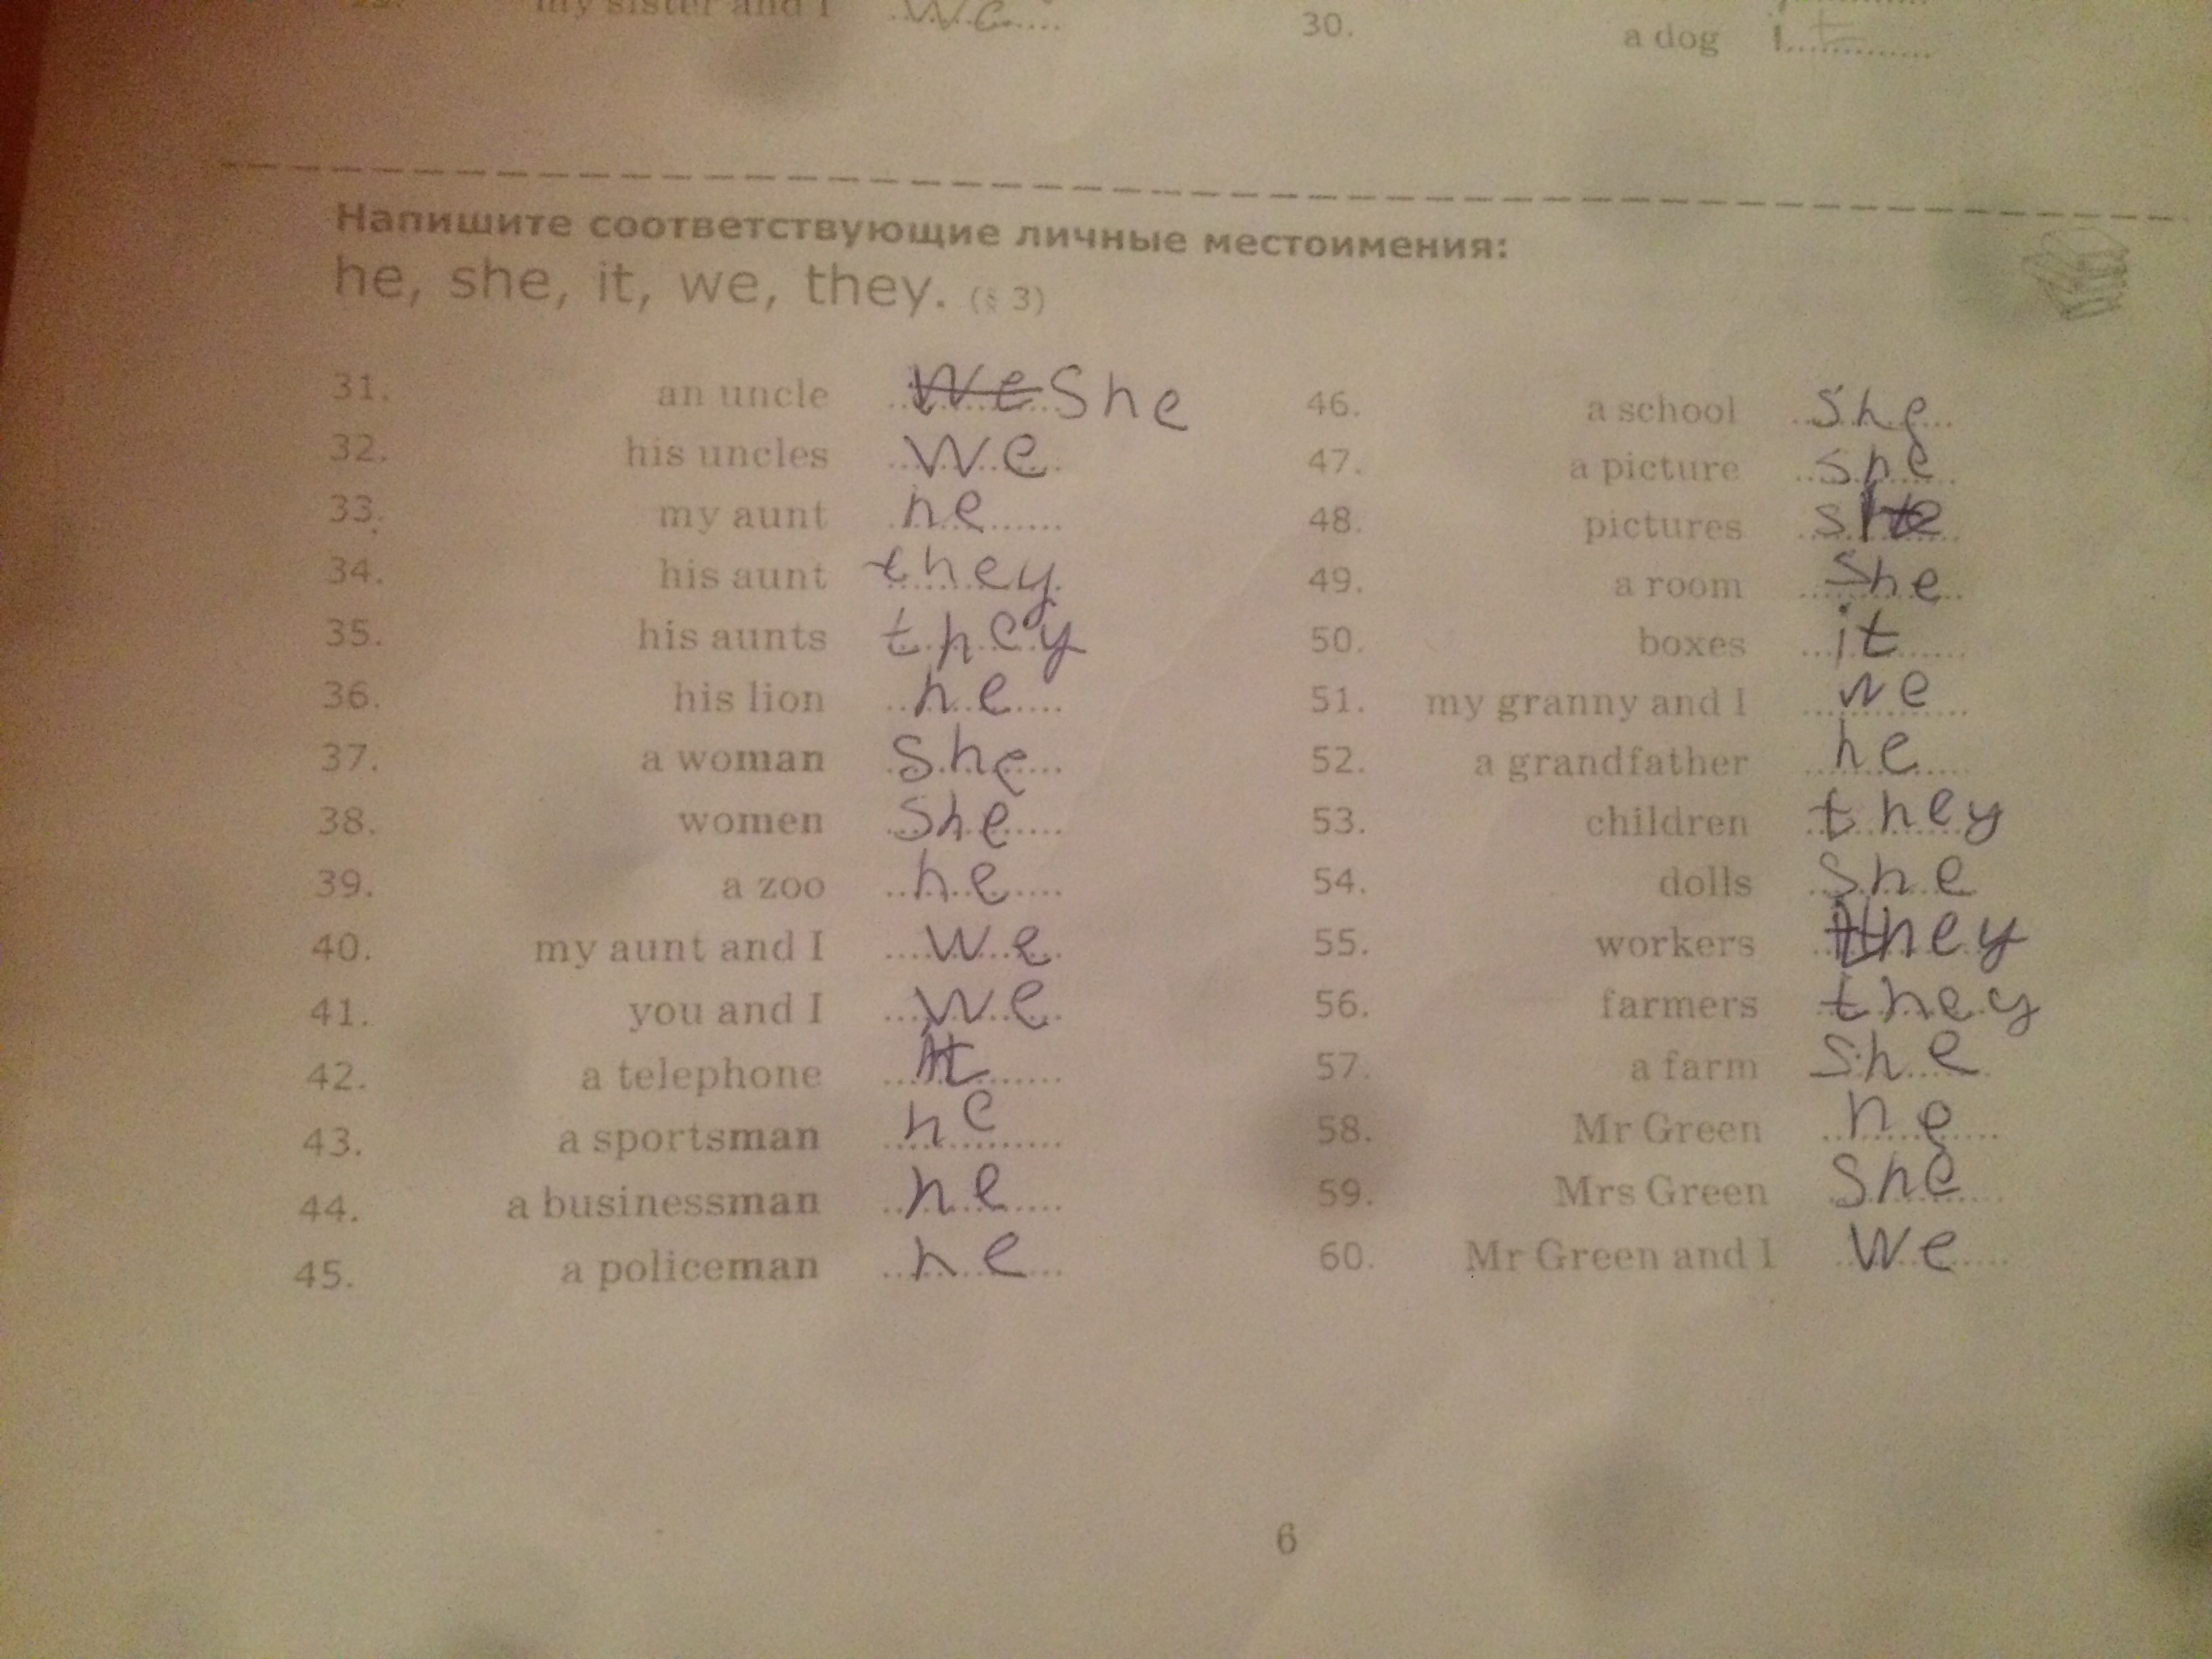 my sister and I we
30. a dog it
Напишите соответствующие личные местоимения:
he, she, it, we, they. (§ 3)
31. an uncle We She
32. his uncles We
33. my aunt he
34. his aunt they
35. his aunts they
36. his lion he
37. a woman She
38. women She
39. a zoo he
40. my aunt and I we
41. you and I we
42. a telephone it
43. a sportsman he
44. a businessman he
45. a policeman he
46. a school she
47. a picture she
48. pictures she
49. a room She
50. boxes it
51. my granny and I we
52. a grandfather he
53. children they
54. dolls She
55. workers they
56. farmers they
57. a farm She
58. Mr Green he
59. Mrs Green She
60. Mr Green and I We
6